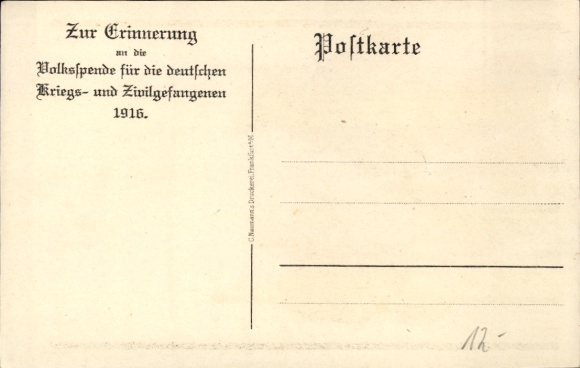 Zur Erinnerung
an die
Volksspende für die deutschen
Kriegs- und Zivilgefangenen
1916.
Postkarte
C. Naumann's Druckerei, Frankfurt a/M.
12.-